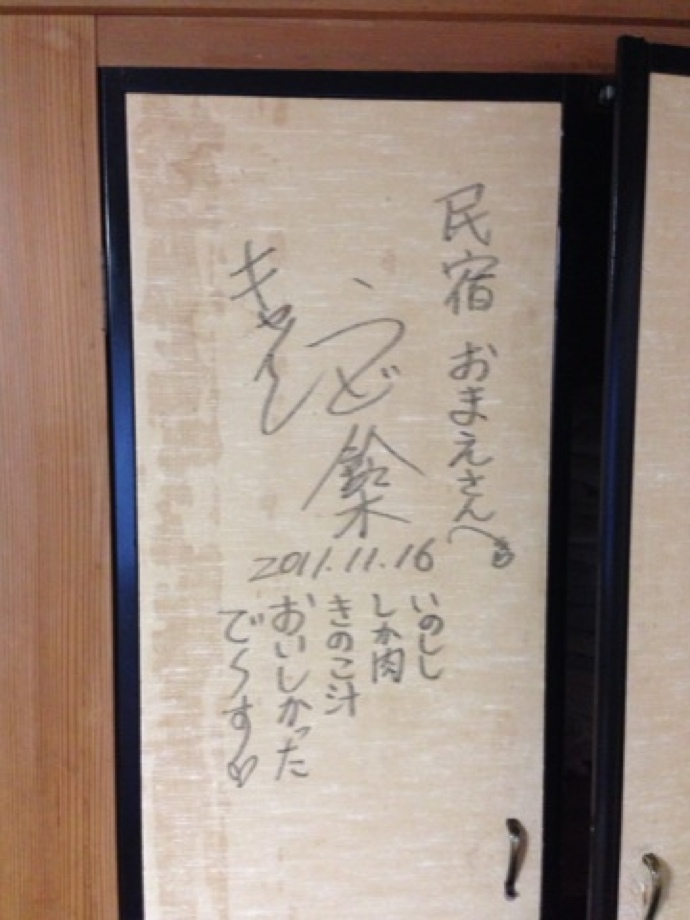 民宿 おまえさんへ
うど鈴木
キャイ〜ン
2011.11.16
いのしし
しか肉
きのこ汁
おいしかった
で〜す♡